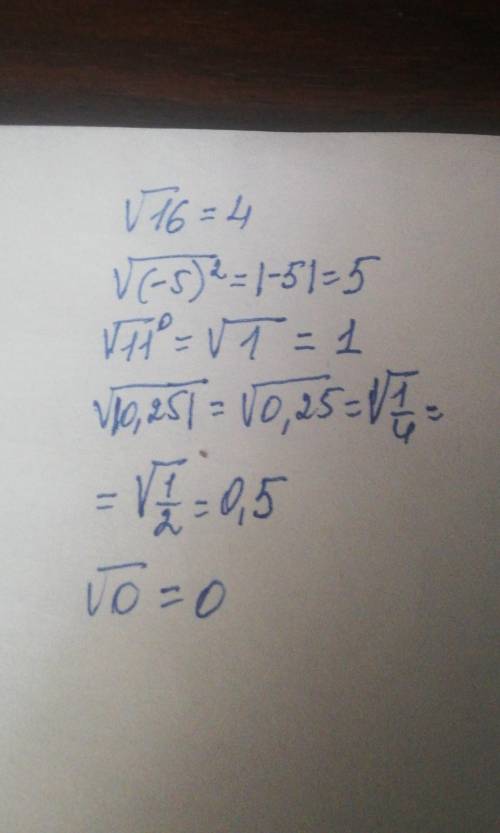 √16 = 4
√(-5)² = |-5| = 5
√11⁰ = √1 = 1
√|0,25| = √0,25 = √1/4 =
= √1/2 = 0,5
√0 = 0